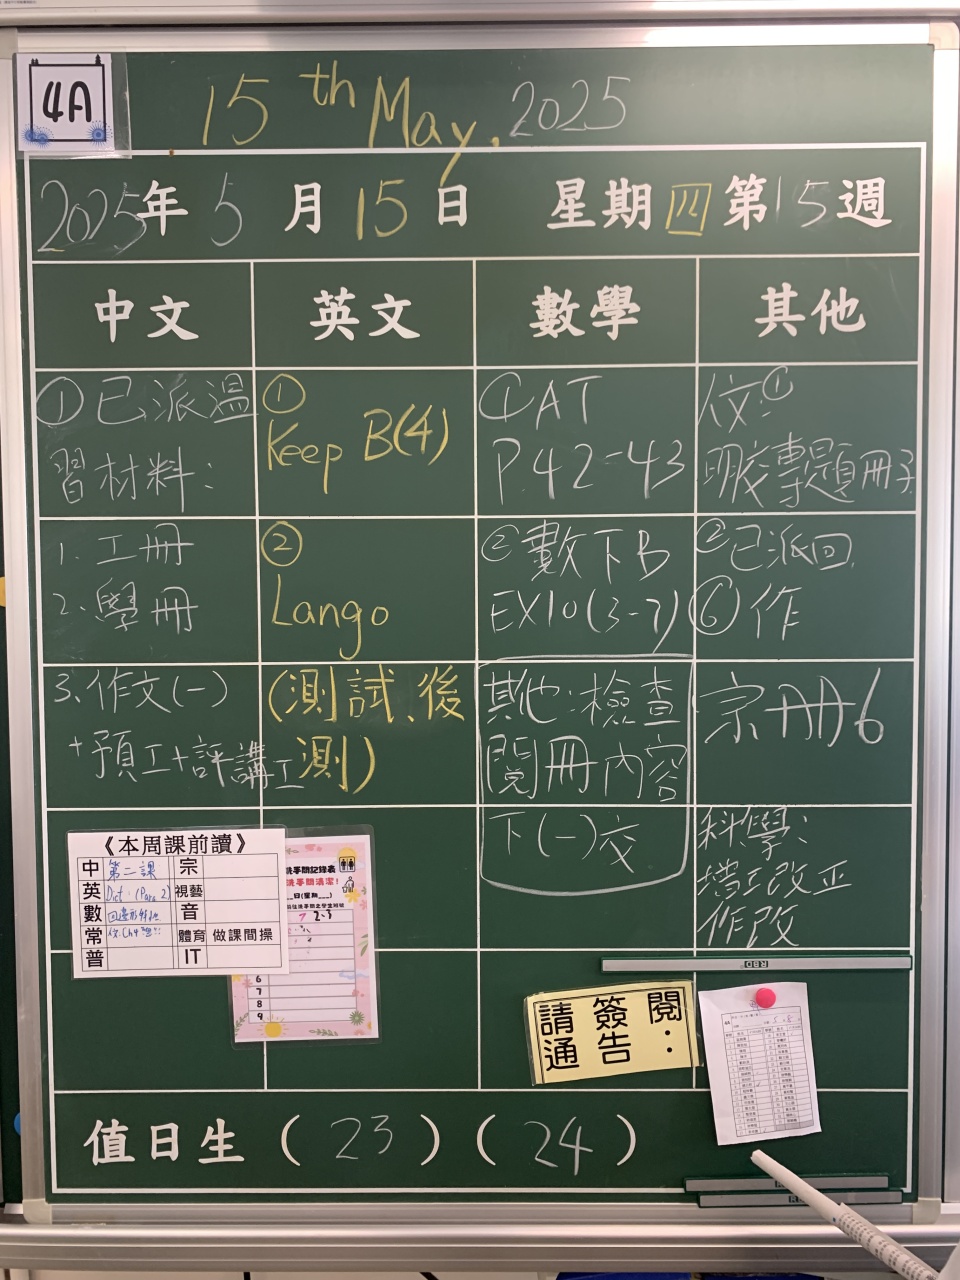 4A
15th May, 2025
2025年5月15日 星期四第15週
中文 英文 數學 其他
①已派溫
習材料:
1. 工冊
2. 學冊
3. 作文(一)
+預工+評講工
①
Keep B(4)
②
Lango
(測試、後
測)
①AT
P.42-43
②數下B
EX10(3-7)
其他:檢查
閱冊內容
下(一)交
①
明交專題冊子
②已派回
⑥作
宗冊6
科學:
改正
作改
《本周課前讀》
中 第二課 宗
英 Dict: (Para 2) 視藝
數 音
常 體育 做課間操
普 IT
洗手間記錄表
洗手間清潔!
2-3
6
7
8
9
RBD
請簽閱:
通告
4A
值日生 (23)(24)